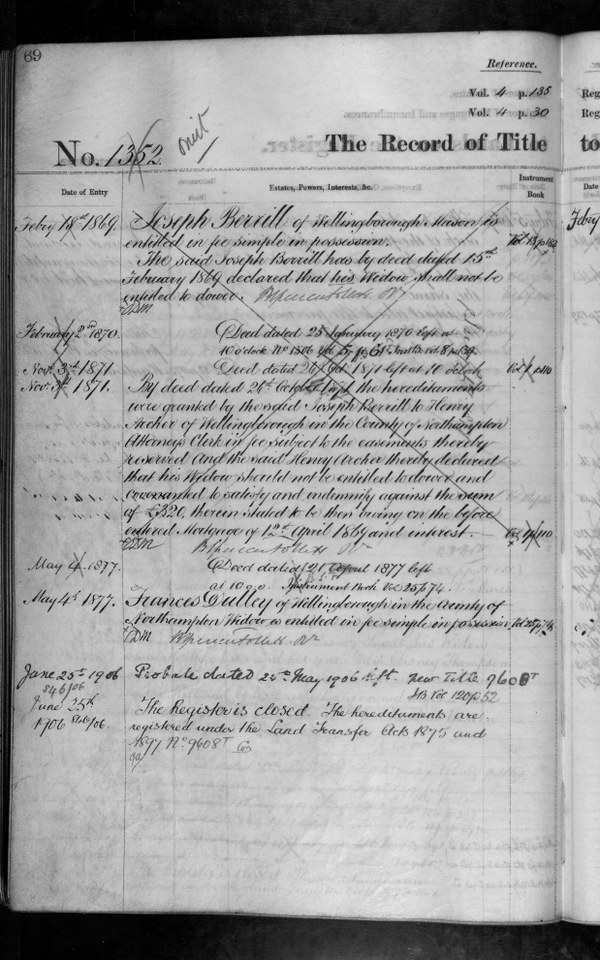 69
Reference.
Vol. 4 p. 135
Vol. 4 p. 30
No. 1352.
The Record of Title
Date of Entry
Estates, Powers, Interests, &c.
Instrument Book
Febry 18th 1869
Joseph Berrill of Wellingborough Mason is
entitled in fee simple in possession.
The said Joseph Berrill has by deed dated 15th
February 1869 declared that his Widow shall not be
entitled to dower.
February 2nd 1870.
Deed dated 25 January 1870 left at
10 o'clock No 1806
Nov. 3rd 1871
Deed dated 1871 left at 10 o'clock
Nov. 3rd 1871.
By deed dated 24th October the hereditaments
were granted by the said Joseph Berrill to Henry
Archer of Wellingborough in the County of Northampton
Attorneys Clerk in fee subject to the easements thereby
reserved And the said Henry Archer thereby declared
that his Widow should not be entitled to dower and
covenanted to satisfy and indemnify against the sum
of £320, therein stated to be then owing on the before
entered Mortgage of 12th April 1869 and interest.
May 4. 1877.
Deed dated 21 April 1877 left
at 10 a.o. Instrument Book Vol 25 p 74.
May 4th 1877.
Frances Dulley of Wellingborough in the County of
Northampton Widow is entitled in fee simple in possession
June 25th 1906
Probate dated May 1906 left. New Title 9608T
IB Vol 120 p 52
June 25th
1906
The Register is closed. The hereditaments are
registered under the Land Transfer Acts 1875 and
1897 No 9608T